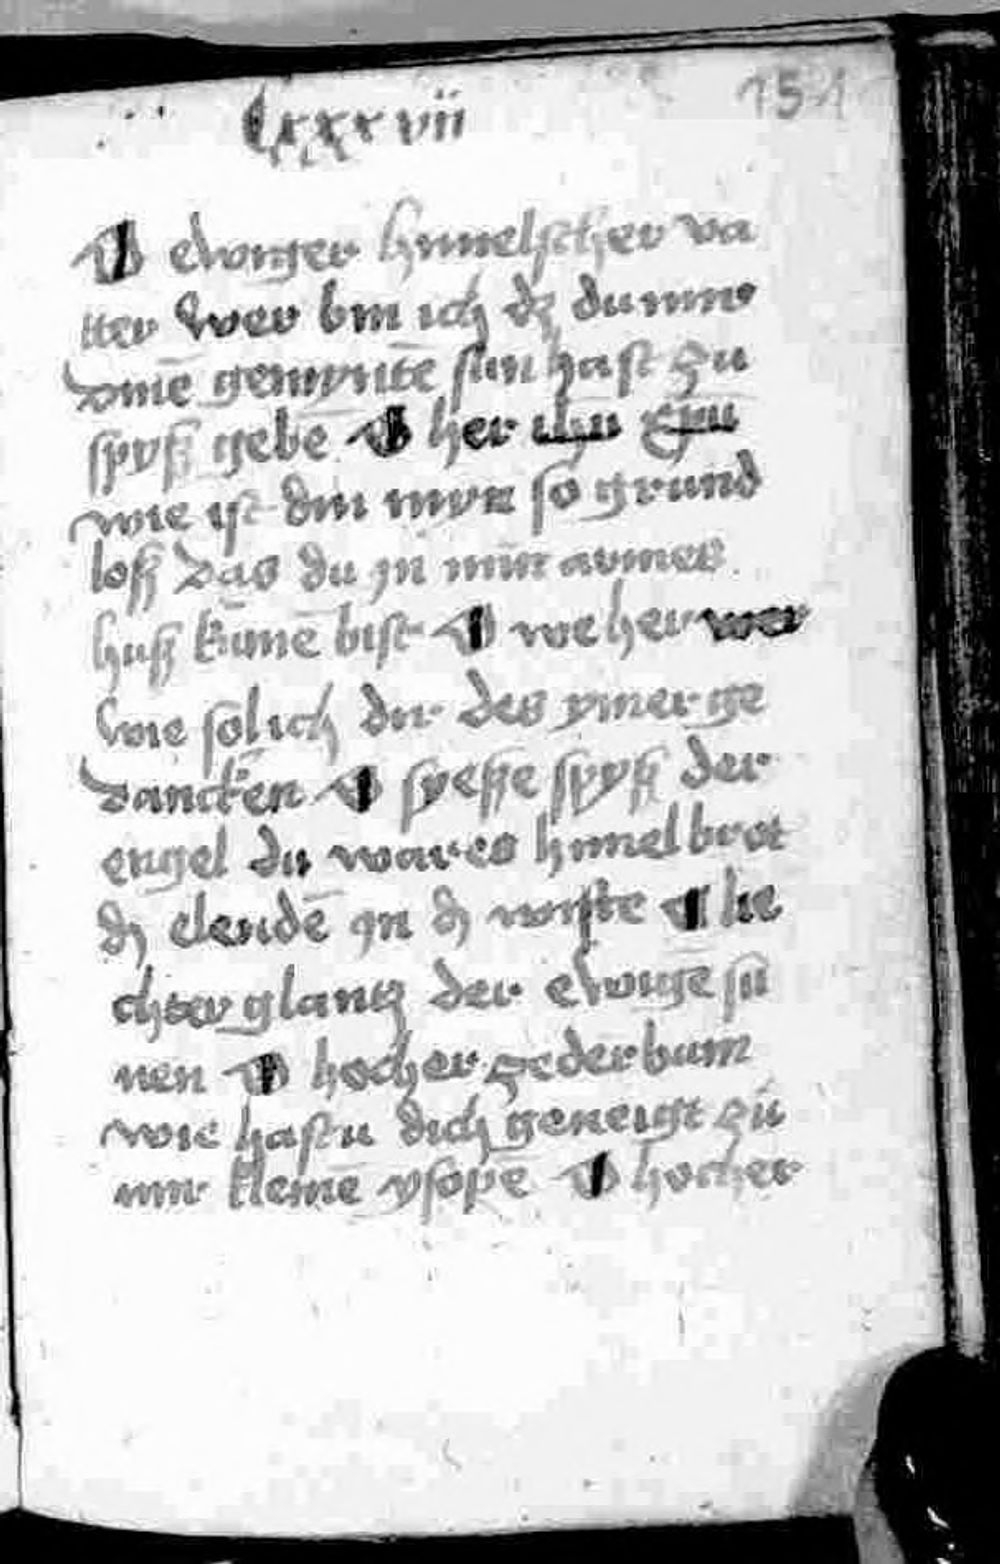 Lxxxvii 151
O ewiger himelscher va
tter wer bin ich dz du mir
dinē gemynte sun hast zu
spyß gebē O her ihu xpu
wie ist din myn so grund
loß das du jn min armes
huß kumē bist O we her wer
wie sol ich dir des ymer ge
dancken O syesse spyß der
engel du wares himelbrot
dz elendē jn dz wiste O lie
chter glantz der ewigē su
nen O hocher zederbum
wie hastu dich geneigt zů
mir kleinē ysope O hocher